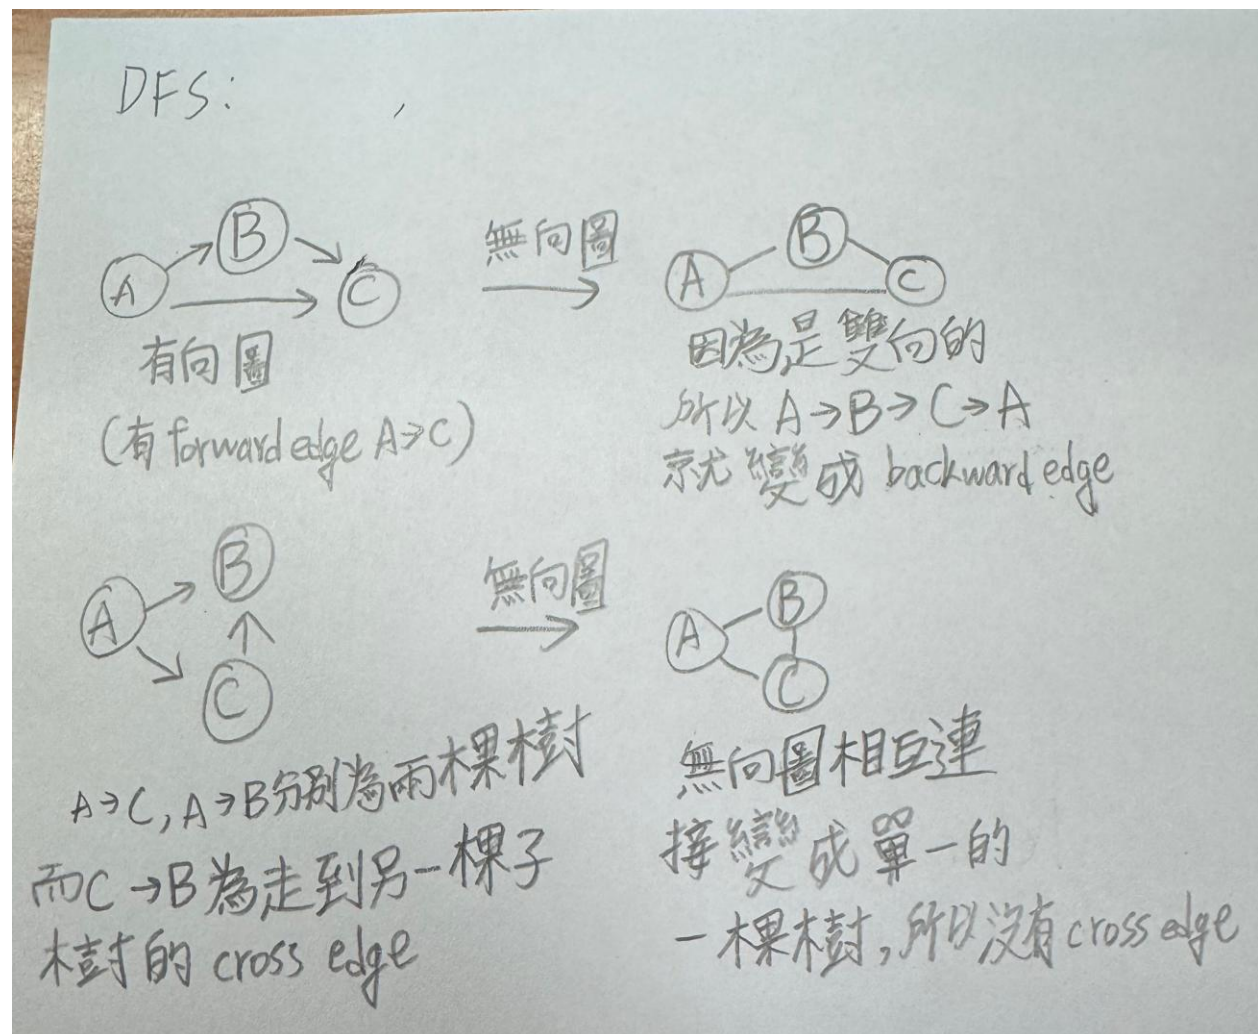 DFS:
B
A
C
無向圖
B
A
C
有向圖
(有 forward edge A→C)
因為是雙向的
所以 A→B→C→A
就變成 backward edge
B
A
C
無向圖
B
A
C
A→C, A→B分別為兩棵樹
而C→B為走到另一棵子
樹的 cross edge
無向圖相互連
接變成單一的
一棵樹,所以沒有cross edge